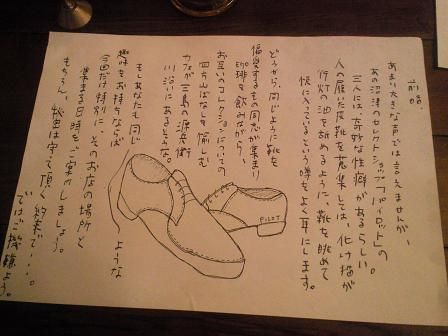 前略、
あまり大きな声では言えませんが、
あの沼津のセレクトショップ「パイロット」の
三人には、奇妙な性癖があるらしい
人の履いた皮靴を蒐集しては、化け猫が
行灯の油を舐めるように、靴を眺めて
悦に入っているという噂をよく耳にします。
どうやら、同じように靴を
偏愛する他の同志が集まり
珈琲を飲みながら、
お互いのコレクションについての
四方山ばなしを愉しむ
カフェが三島の源兵衛
川沿いにあるそうな。
もしあなたも同じ
ような
趣味をお持ちならば
今回だけ特別に、そのお店の場所と
集まる日時をご案内しましょう。
もちろん、秘密は守って頂く約束で・・・。
ではご機嫌よう。
PILOT